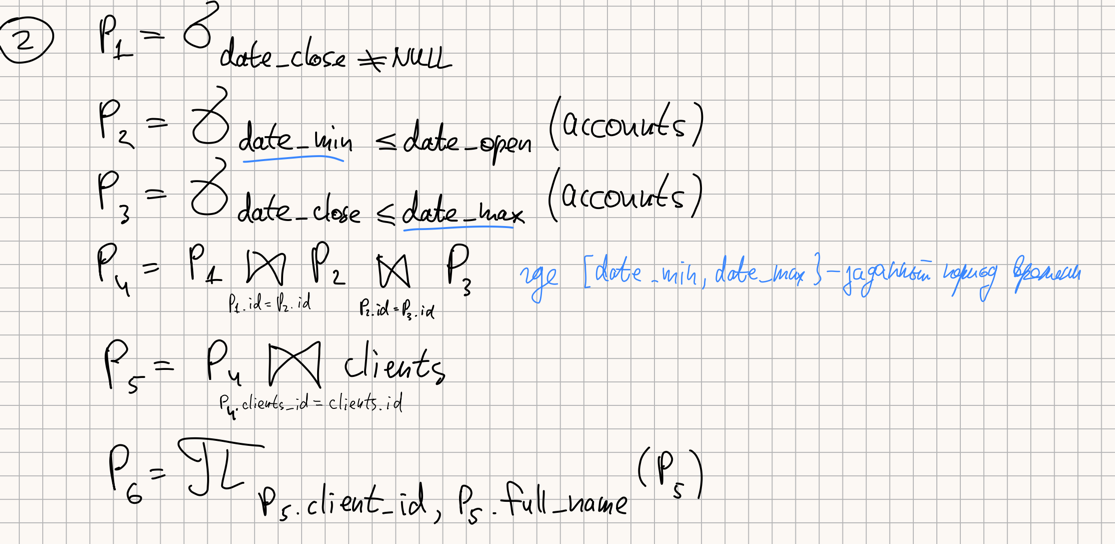 2 P₁ = σ date_close ≠ NULL
P₂ = σ date_min ≤ date_open (accounts)
P₃ = σ date_close ≤ date_max (accounts)
P₄ = P₁ ⋈ P₁.id = P₂.id P₂ ⋈ P₂.id = P₃.id P₃ где [date_min, date_max] - заданный период времени
P₅ = P₄ ⋈ P₄.clients_id = clients.id clients
P₆ = π P₅.client_id, P₅.full_name (P₅)